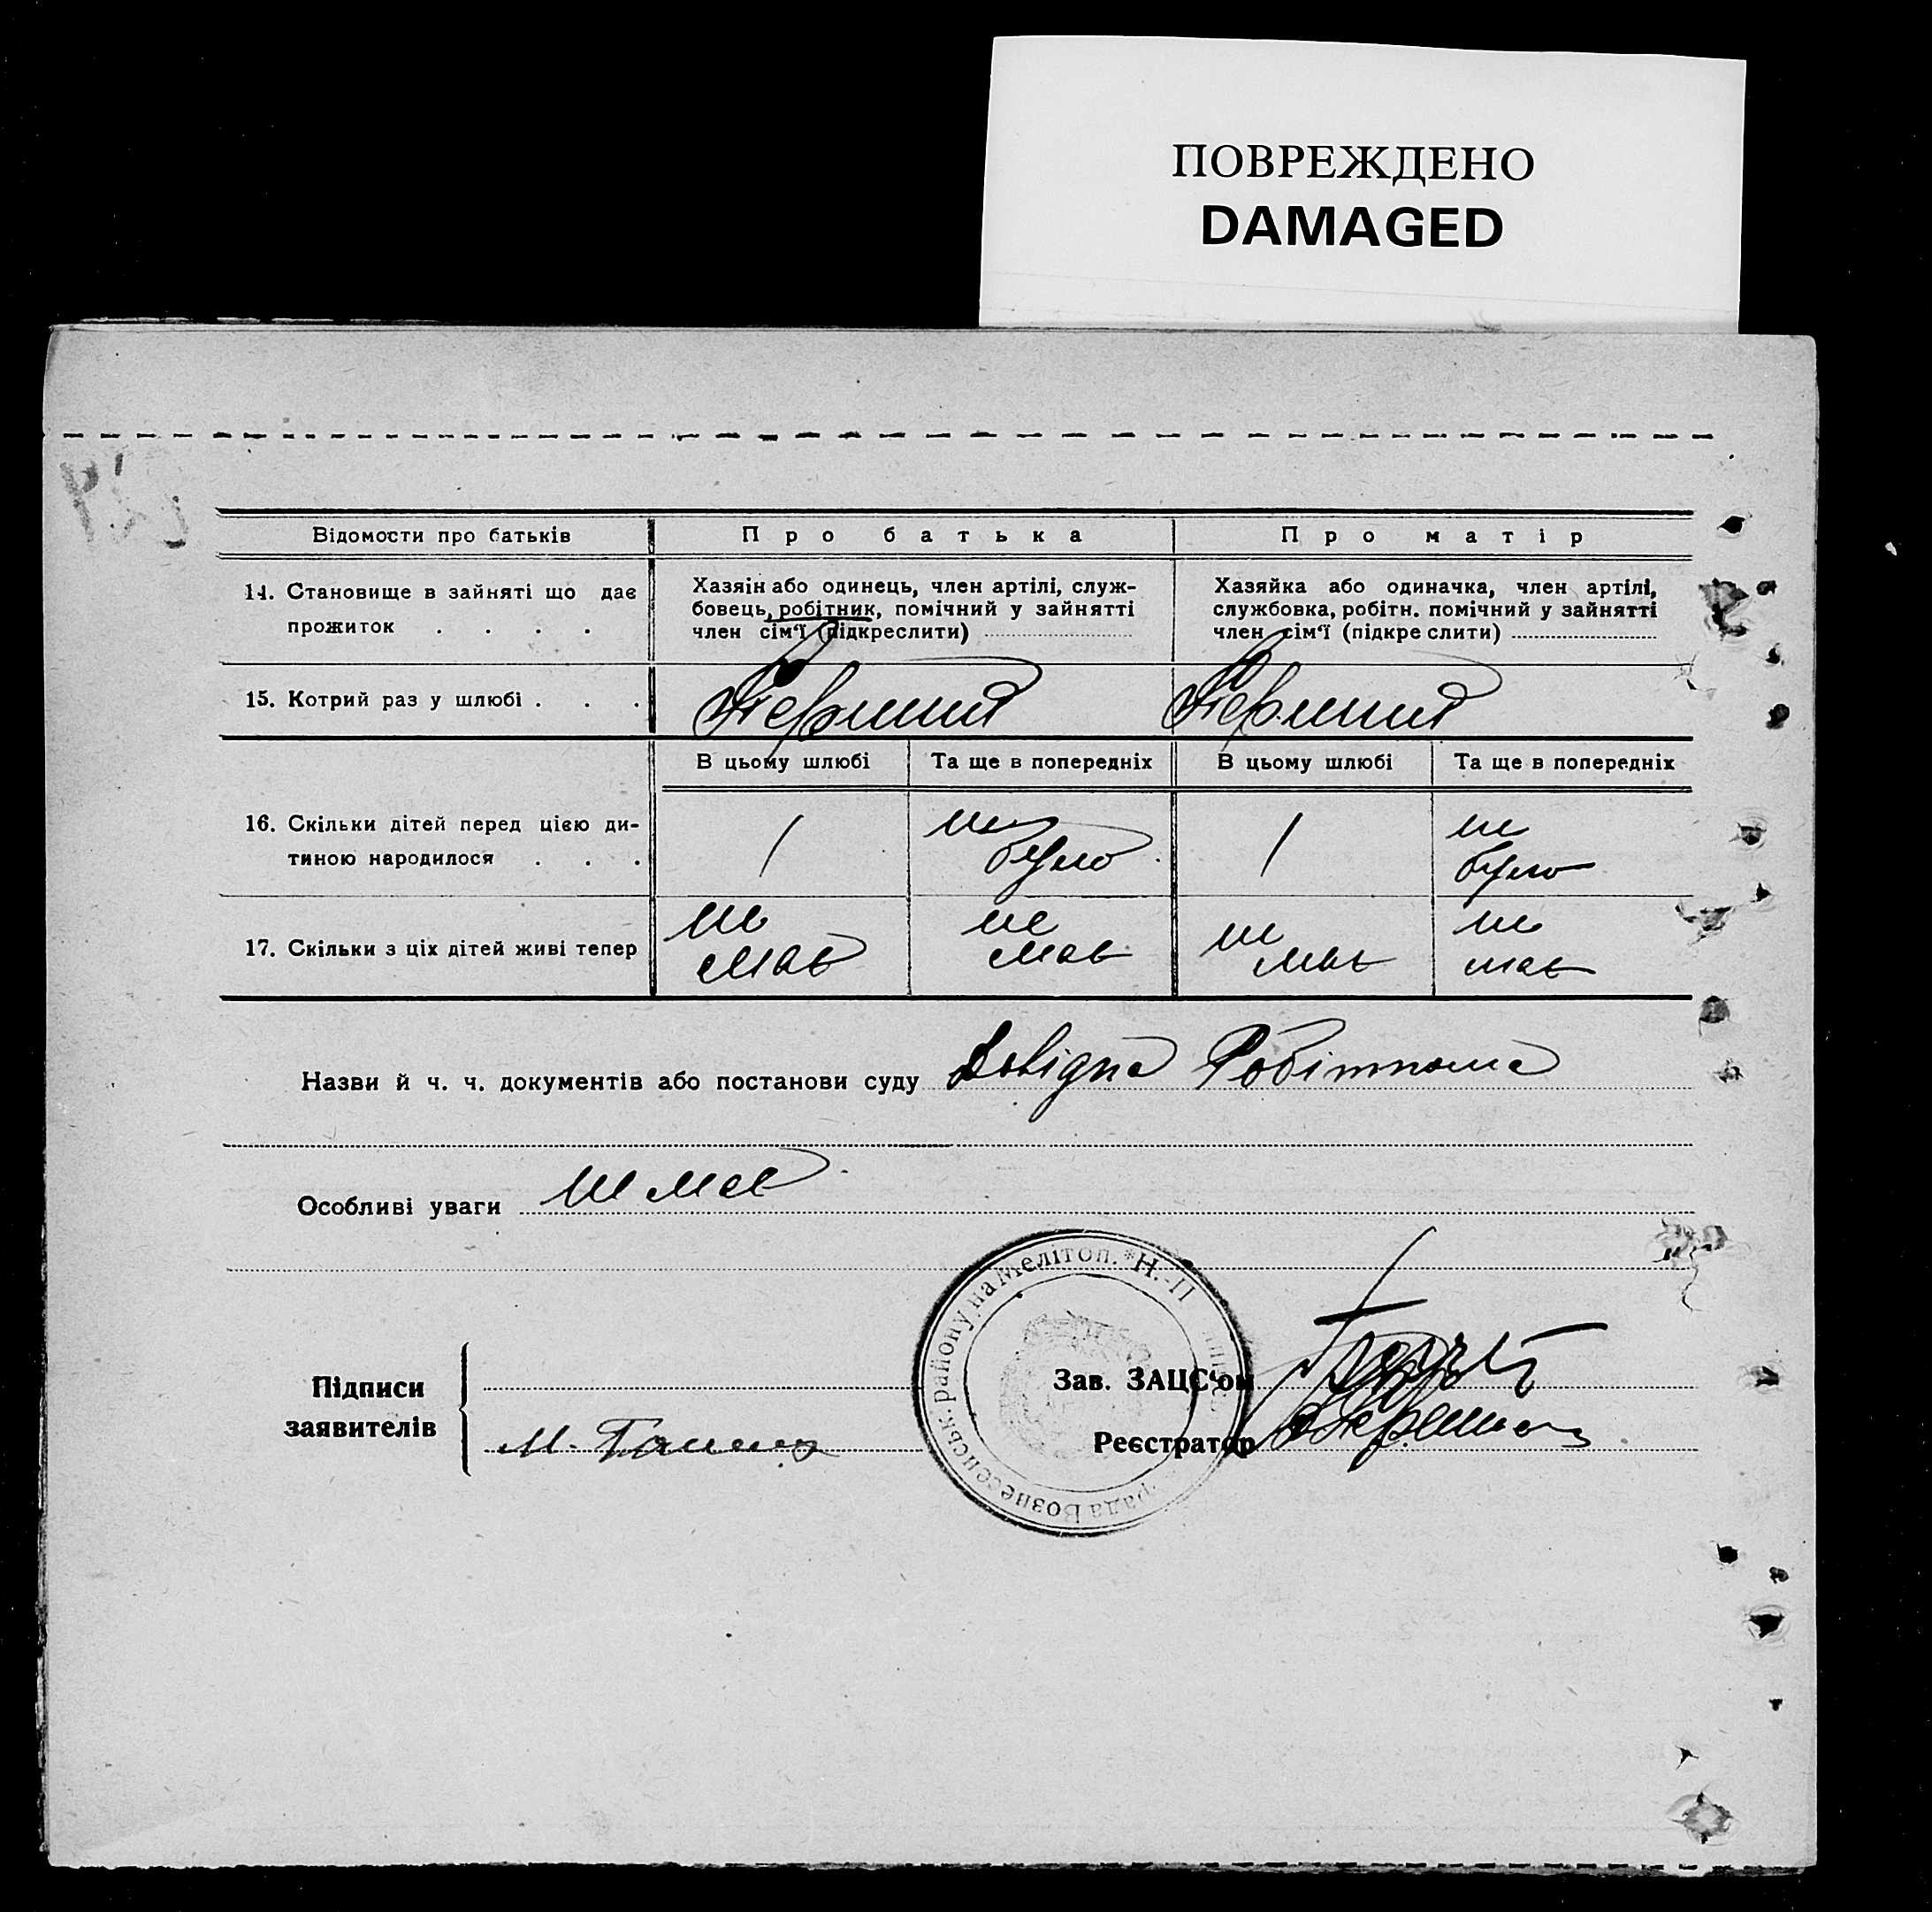 ПОВРЕЖДЕНО
DAMAGED
Відомости про батьків
Про батька
Про матір
14. Становище в зайняті що дає
прожиток . . . .
Хазяін або одинець, член артілі, служ-
бовець, робітник, помічний у зайнятті
член сім'ї (підкреслити)
Хазяйка або одиначка, член артілі,
службовка, робітн. помічний у зайнятті
член сім'ї (підкре слити)
15. Котрий раз у шлюбі . . .
Перший
Перший
В цьому шлюбі
Та ще в попередніх
В цьому шлюбі
Та ще в попередніх
16. Скільки дітей перед цією ди-
тиною народилося . . .
1
не
було
1
не
було
17. Скільки з ціх дітей живі тепер
не
має
не
має
не
має
не
має
Назви й ч. ч. документів або постанови суду Довідна
Особливі уваги не має
Мелітоп. * Н.-П
рада Вознесенськ. району на
Підписи
заявителів
М.
Зав. ЗАЦС'ом
Реєстратор